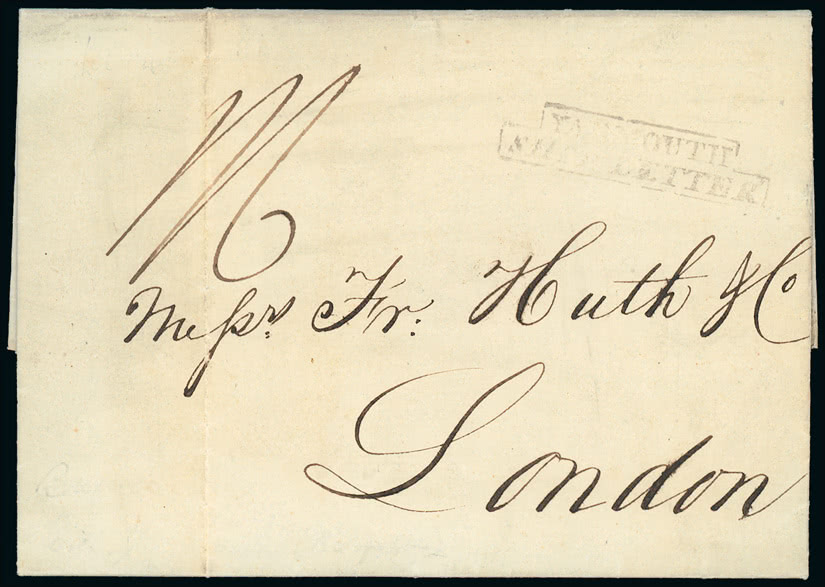 YARMOUTH
SHIP LETTER
Messrs Fr: Huth & Co
London